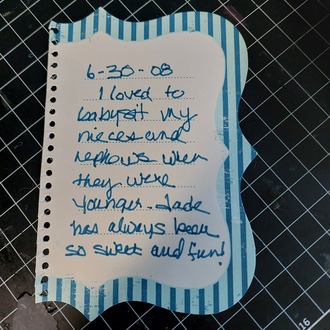 6-30-08
I loved to
babysit my
nieces and
nephews when
they were
younger. Jade
has always been
so sweet and fun!
16